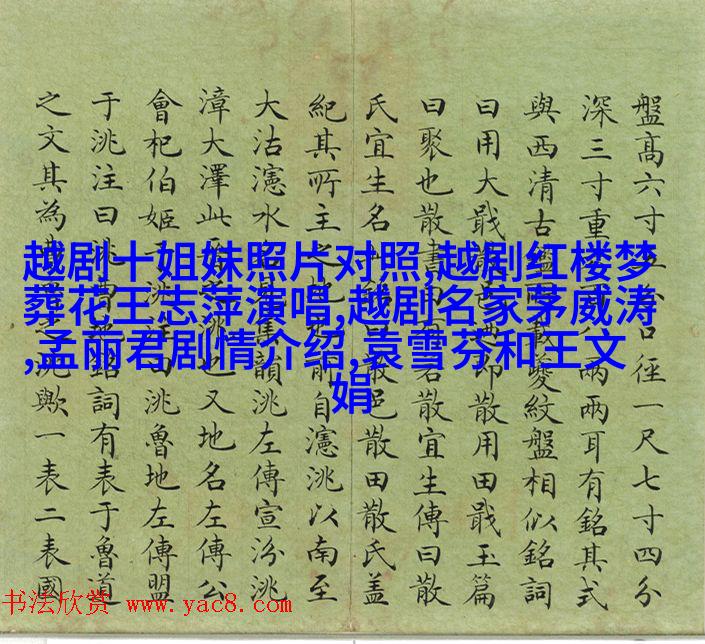 越剧十姐妹照片对照,越剧红楼梦
葬花王志萍演唱,越剧名家茅威涛
,孟丽君剧情介绍,袁雪芬和王文
娟
盤高六寸分口徑一尺七寸四分
深三寸重八兩兩耳有銘其式
與西清古載夔紋盤相似銘詞
曰用大戢即散用田戢玉篇
曰聚也散書若散宜生傳曰散
氏宜生名曰散邑散田散氏盖
紀其所主之前自瀗洮以南至
大沽瀗水名集韻洮左傳宣汾洮
漳大澤此洮也又地名左傳公
會杞伯姬于洮洮魯地左傳盟
于洮注曰洮銘詞有表于魯道
之文其為洮歟一表二表國
书法欣赏 www.yac8.com